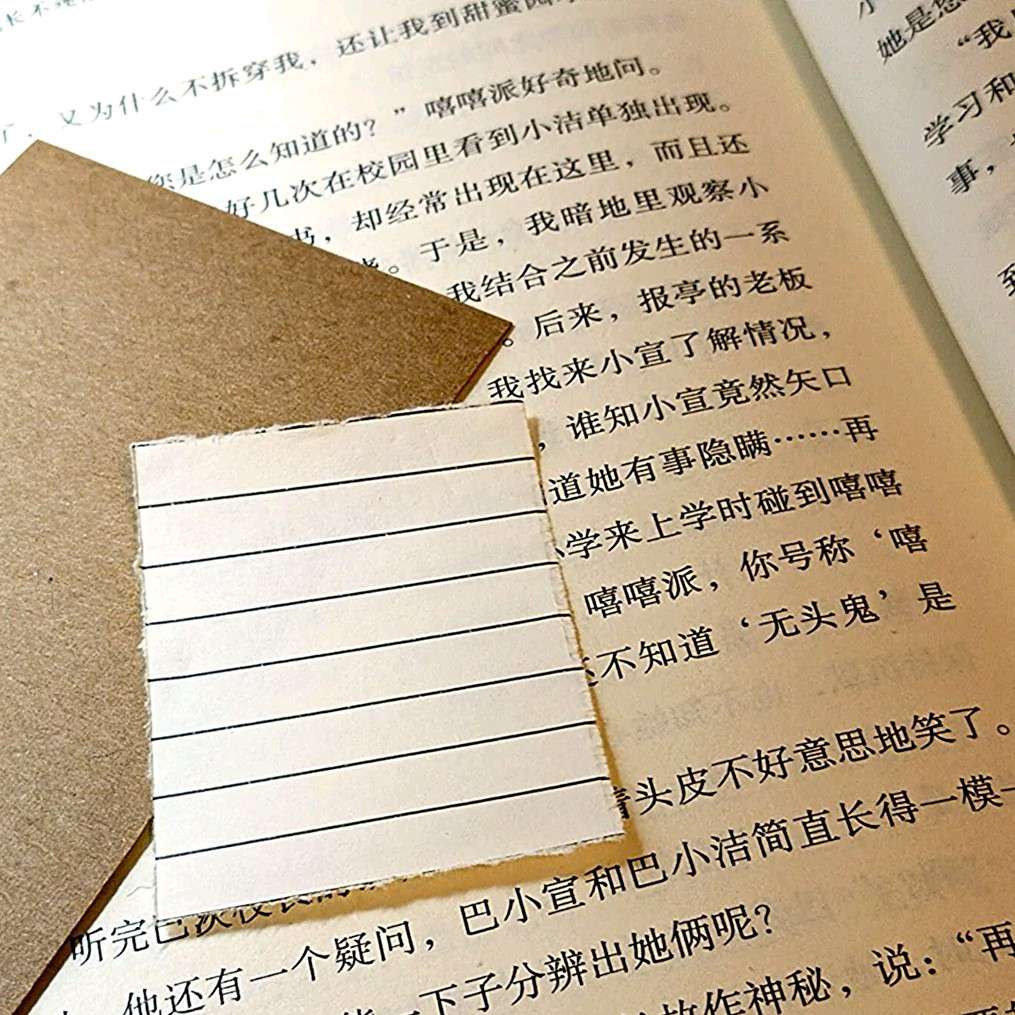 长不
又为什么不拆穿我，还让我到甜蜜
您是怎么知道的？”嘻嘻派好奇地问。
好几次在校园里看到小洁单独出现。
书，却经常出现在这里，而且还
。于是，我暗地里观察小
我结合之前发生的一系
。后来，报亭的老板
我找来小宣了解情况，
，谁知小宣竟然矢口
道她有事隐瞒……再
小学来上学时碰到嘻嘻
嘻嘻派，你号称‘嘻
不知道‘无头鬼’是
着头皮不好意思地笑了。
听完巴
他还有一个疑问，巴小宣和巴小洁简直长得一模一
一下子分辨出她俩呢？
故作神秘，说：“再
她是您
“我
学习和
事，